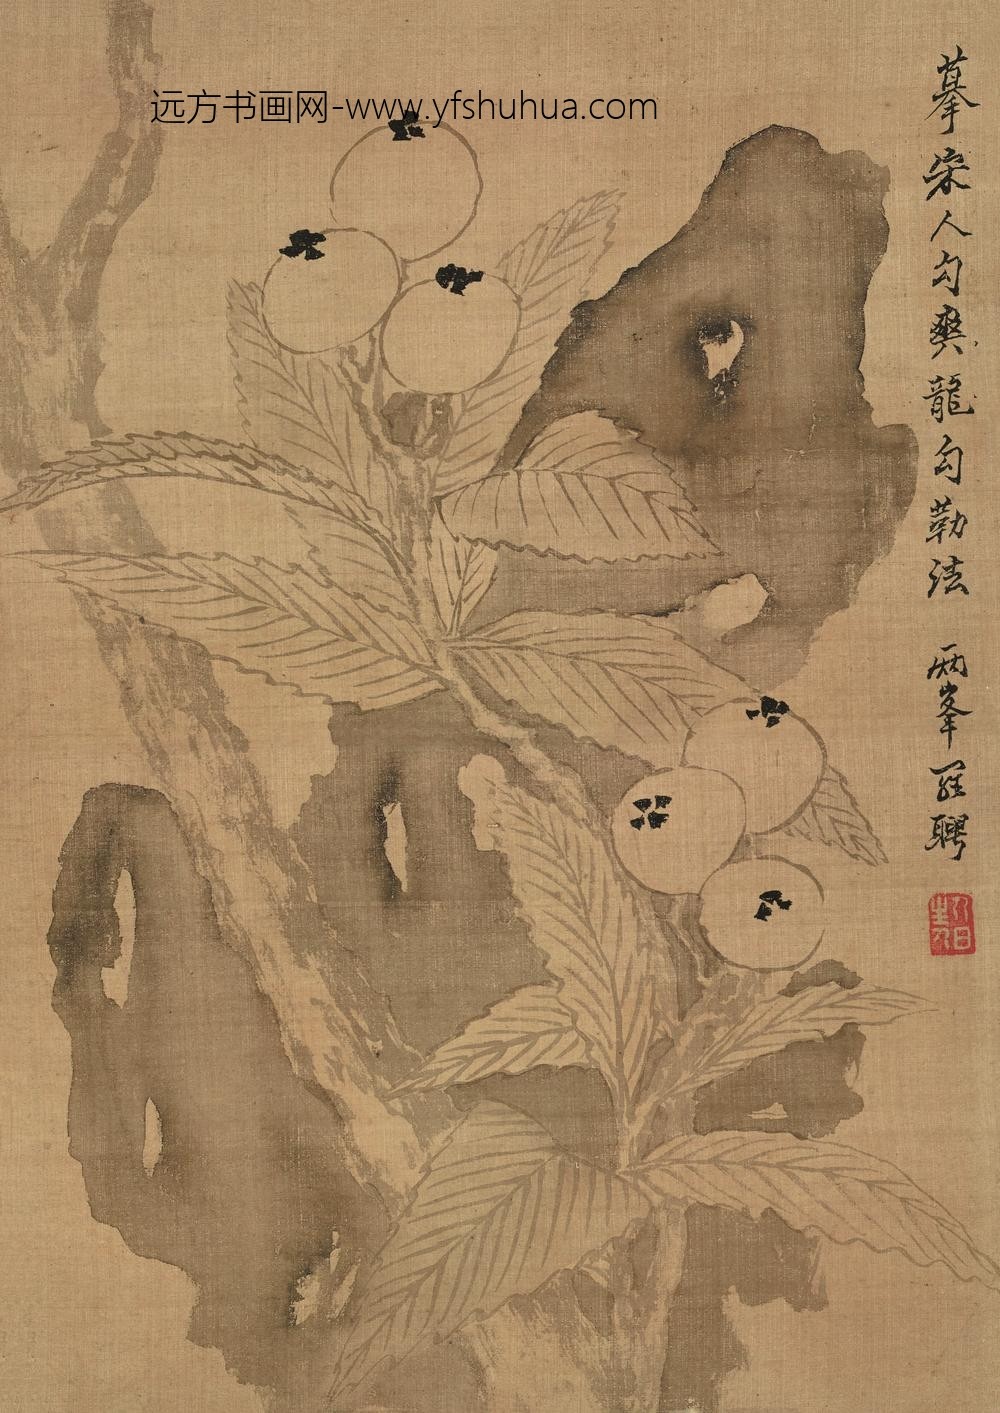 远方书画网-www.yfshuhua.com
摹宋人勾爽龍勾勒法 兩峯羅聘